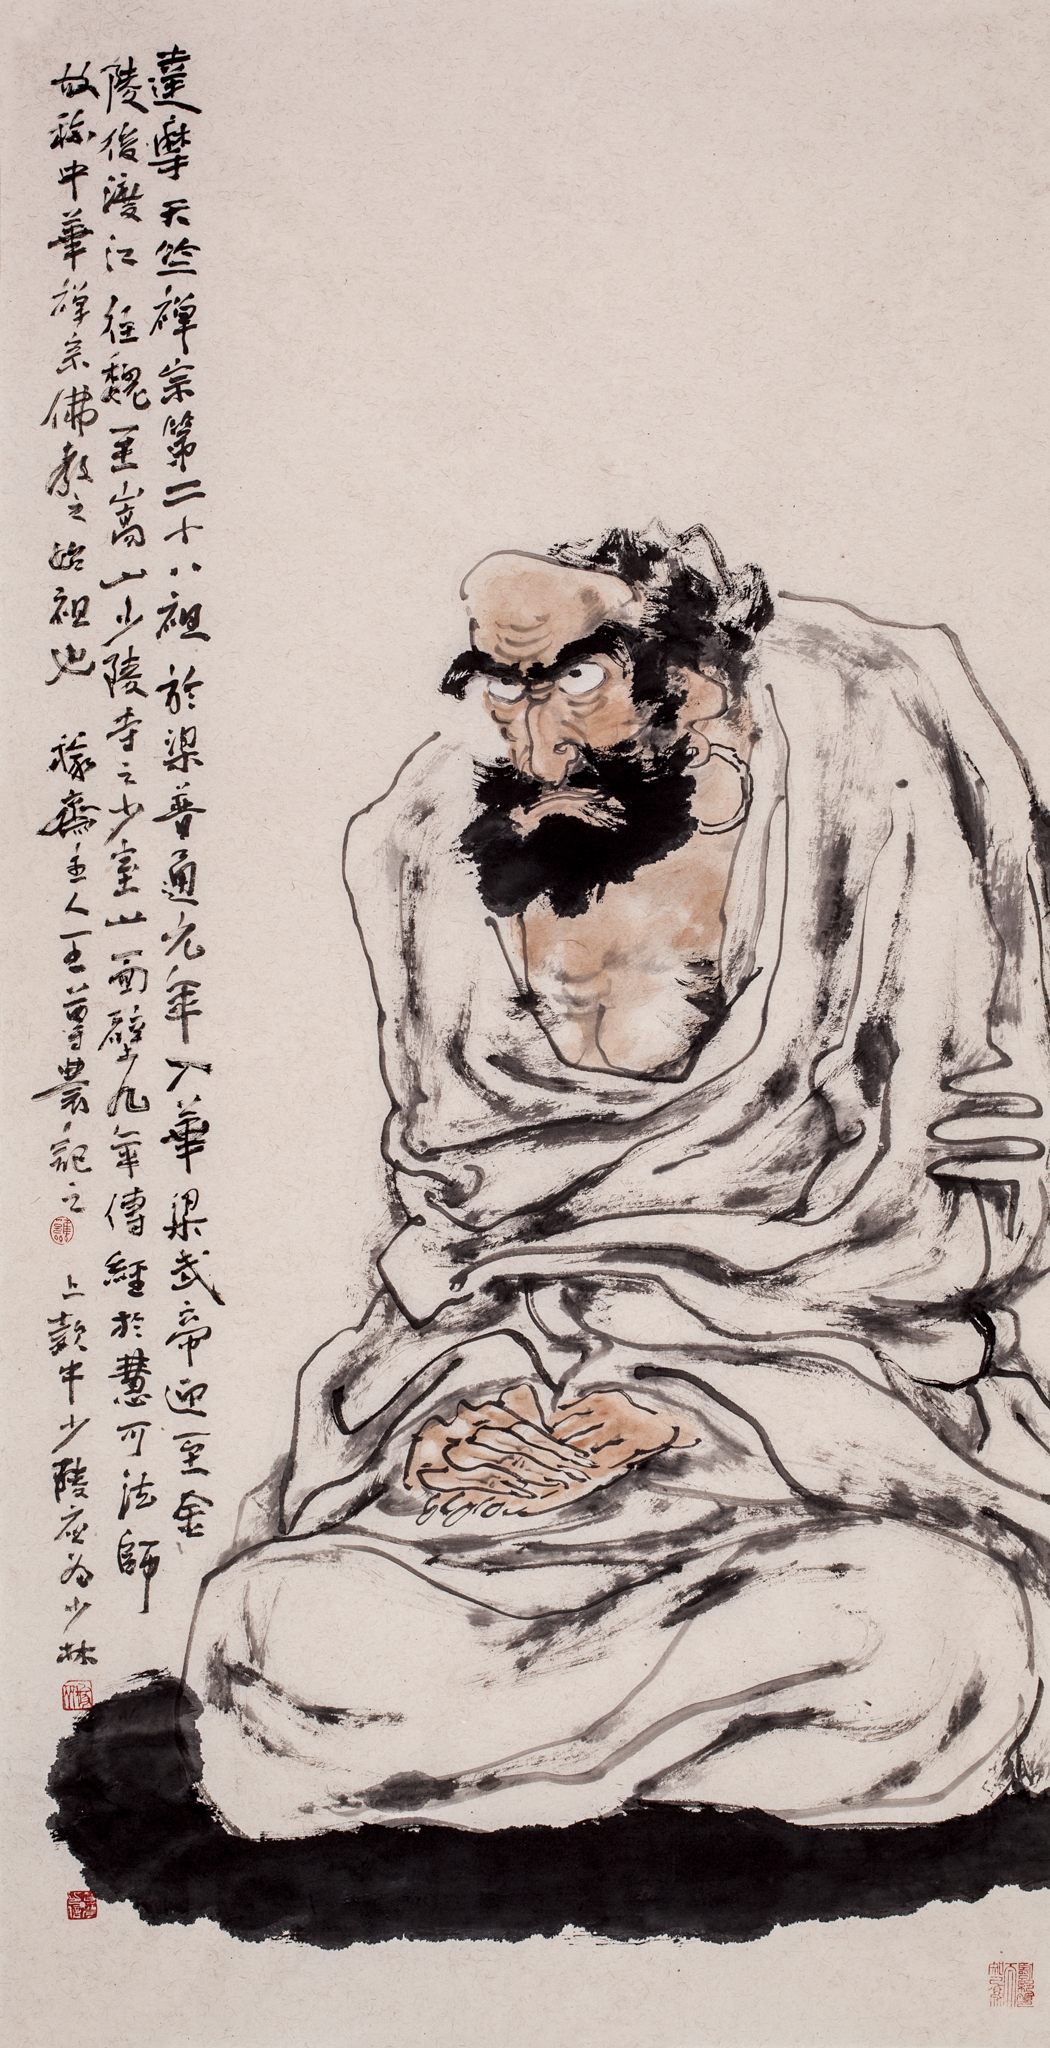 達摩天竺禪宗第二十八祖於梁普通元年入華梁武帝迎至金
陵後渡江往魏至嵩山少陵寺之少室山面壁九年傳經於慧可法師
故稱中華禪宗佛教之始祖也 稼齋主人王尊農記之 上款中少陵應為少林